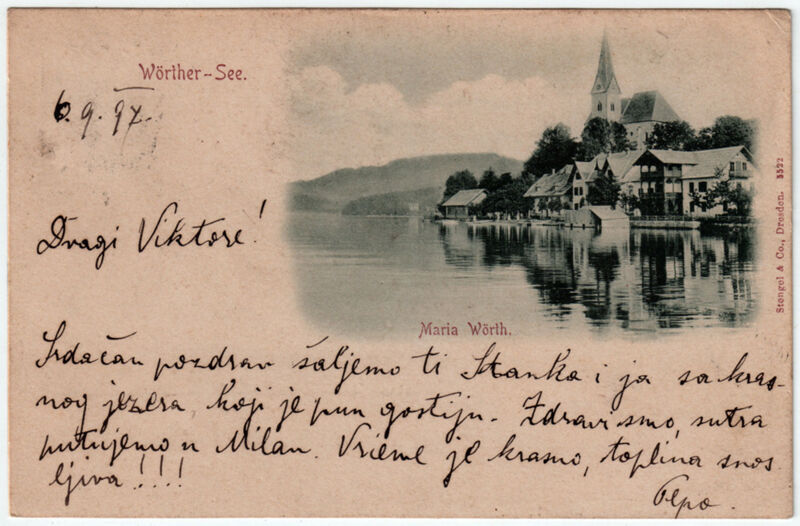 Wörther-See.
6. 9. 97.
Dragi Viktore!
Maria Wörth.
Stengel & Co., Dresden. 5522
Srdačan pozdrav šaljemo ti Stanka i ja sa kras-
nog jezera, koji je pun gostiju. Zdravi smo, sutra
putujemo u Milan. Vrieme je krasno, toplina snos
ljiva!!!!